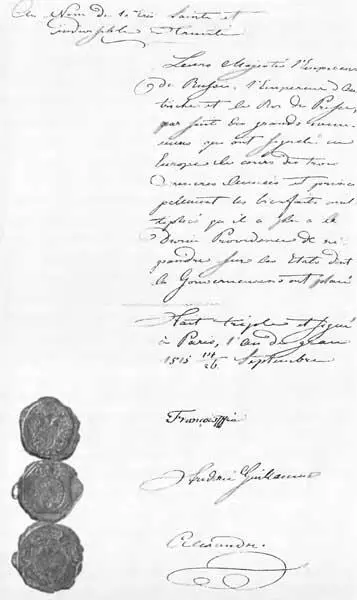 Au Nom de la très Sainte et
indivisible Trinité
Leurs Majestés l'Empereur
de Russie, l'Empereur d'Au
triche et le Roi de Prusse,
par suite des grands évène
mens qui ont signalé en
Europe le cours des trois
dernières années et princi
palement des bienfaits mul
tipliés qu'il a plu à la
Divine Providence de ré
pandre sur les Etats dont
les Gouvernemens ont placé
Fait triple et signé
à Paris, l'an de grace
1815 14/26 Septembre
François
Frédéric Guillaume
Alexandre.